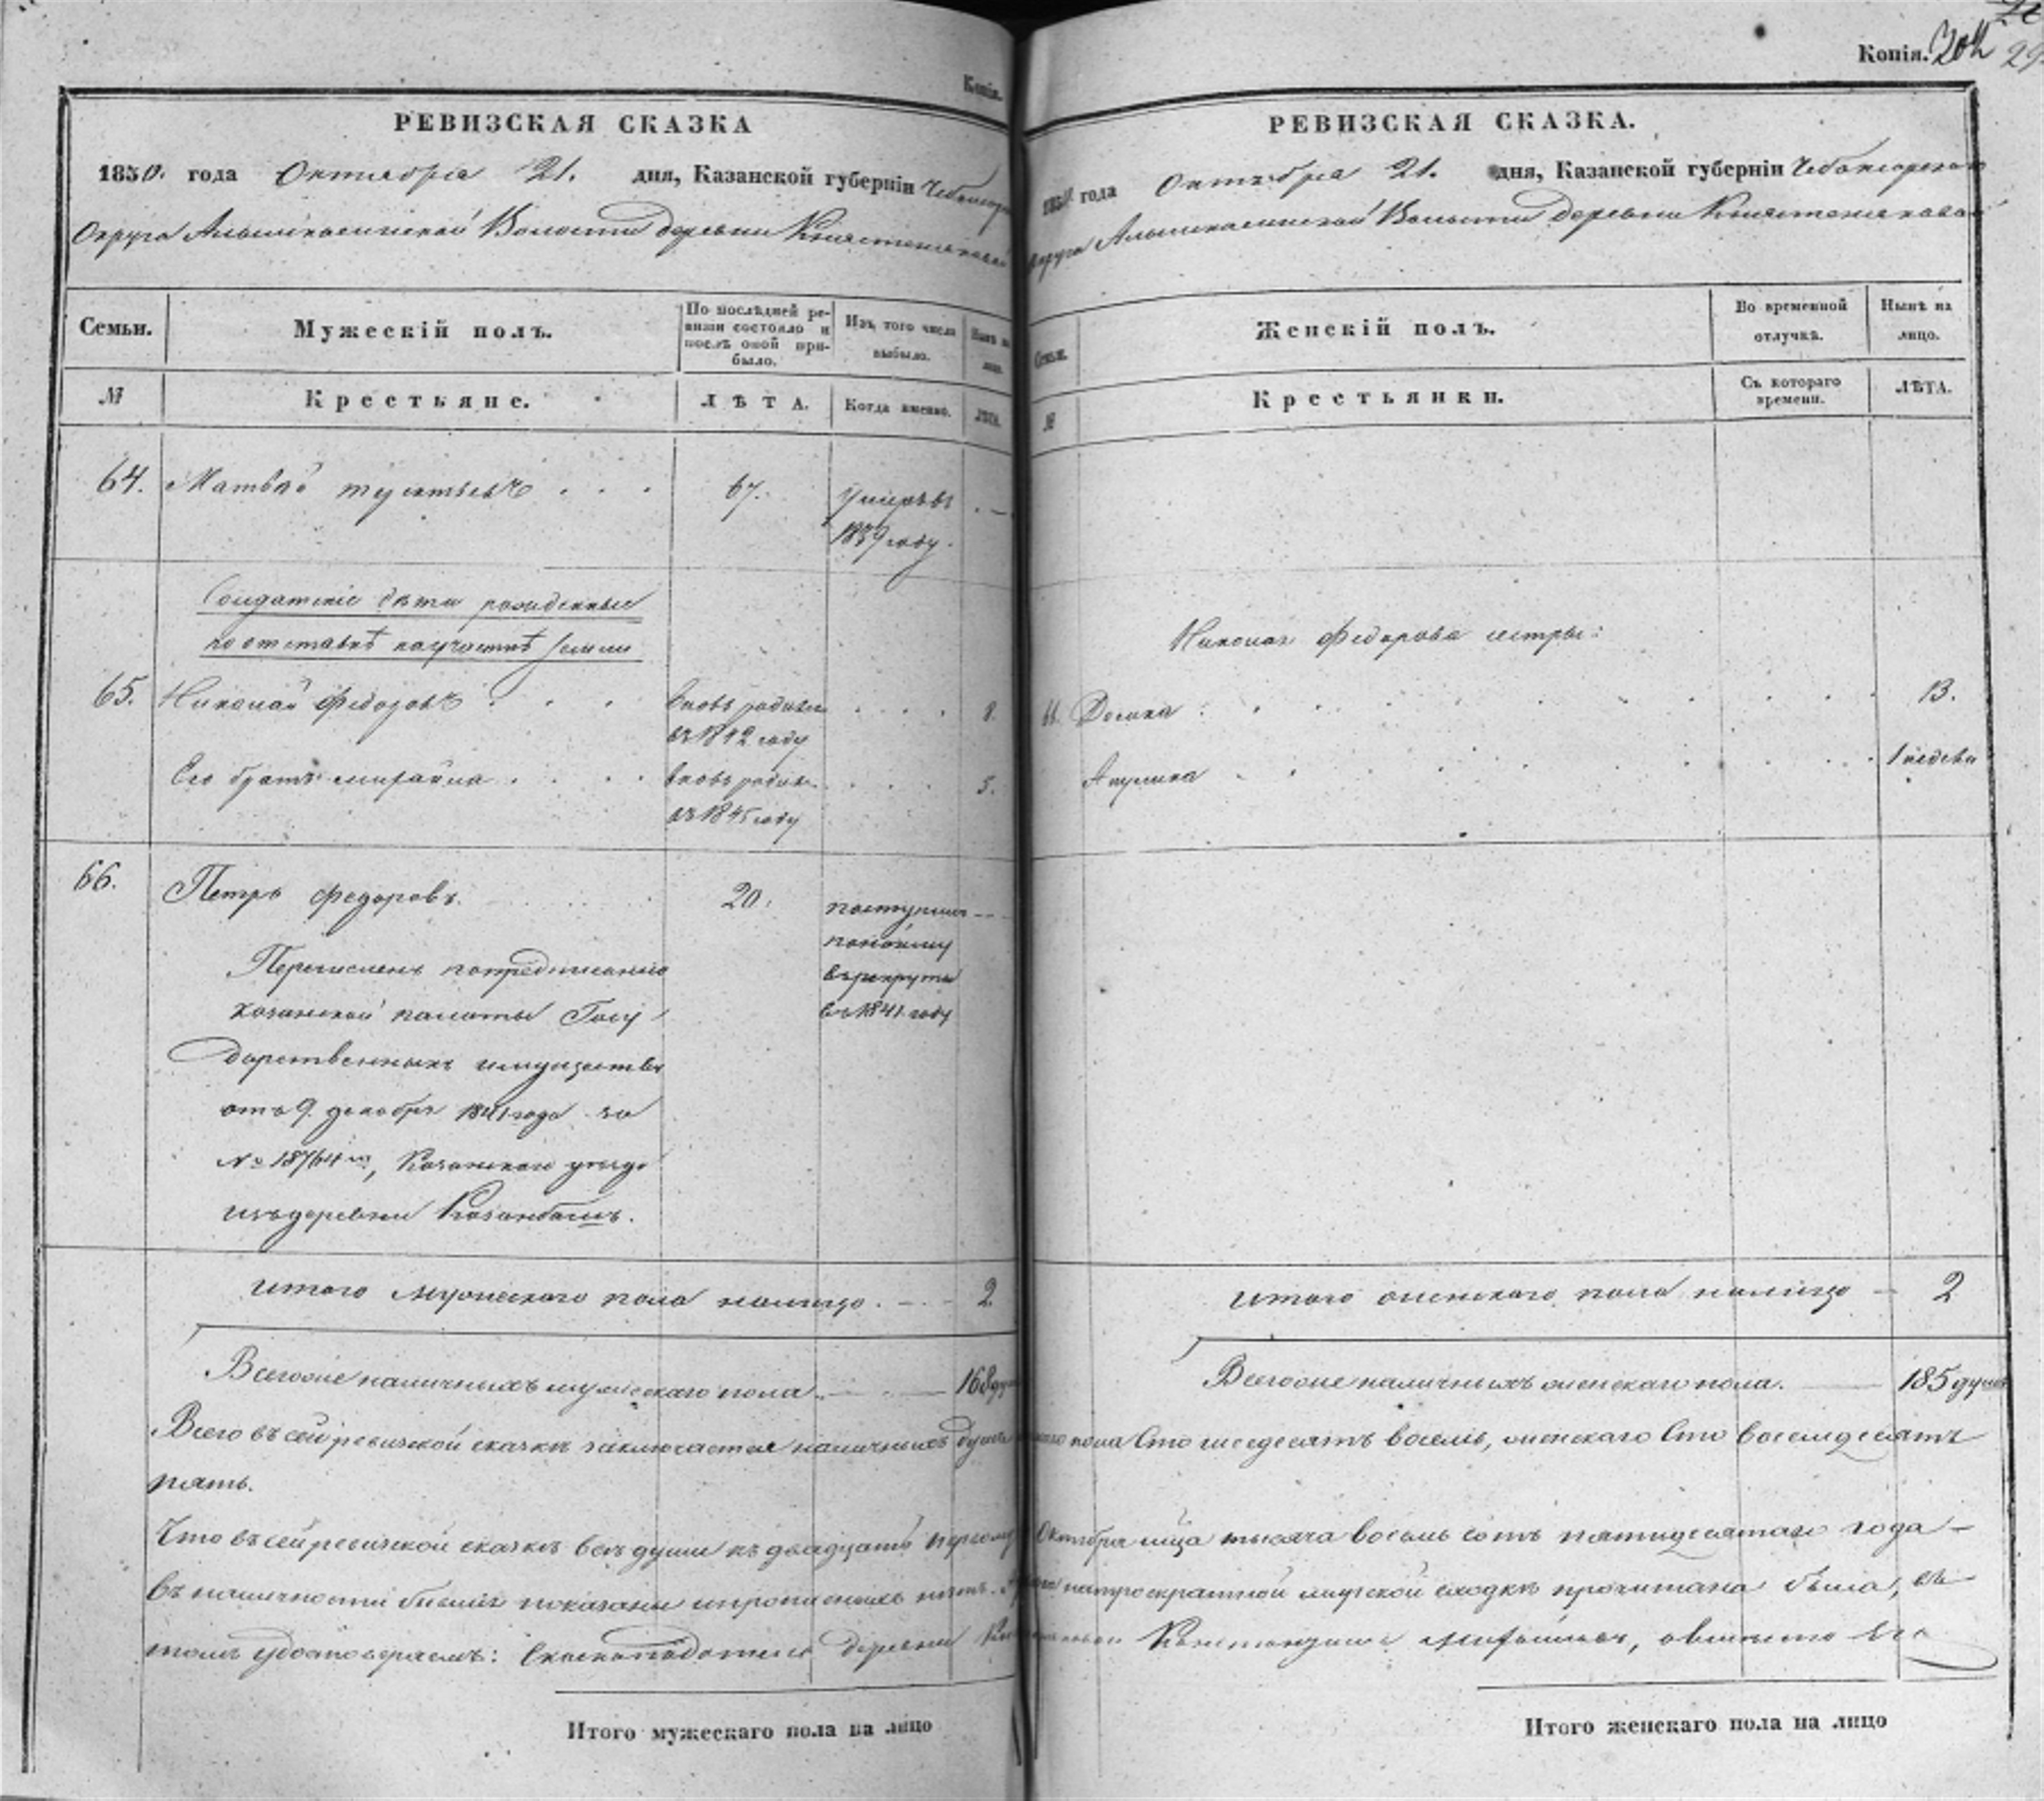 Копія.
РЕВИЗСКАЯ СКАЗКА
1850. года Октября 21. дня, Казанской губерніи
Округа Волости деревни
Семьи.
Мужескій полъ.
По послѣдней ре-
визіи состояло и
послѣ оной при-
было.
Изъ того числа
выбыло.
Нынѣ на
лицо.
№
Крестьяне.
ЛѢТА.
Когда именно.
ЛѢТА.
64. Матвѣй 67. Умеръ въ
1839 году.
Солдатскіе дѣти рожденные
по отставкѣ на участкѣ земли
65. Николай Федоровъ вновь рожден 8.
въ 1842 году
Его братъ Михайла вновь рожден 5.
въ 1845 году
66. Петръ Федоровъ. 20. поступилъ
по найму
въ рекруты
въ 1841 году
Перечисленъ по предписанію
Казанской палаты Госу
дарственныхъ имуществъ
отъ 9 декабря 1841 года за
№ 18764, Казанскаго уѣзда
изъ деревни Казанбашъ.
Итого мужескаго пола налицо. 2
Всего же наличныхъ мужескаго пола 168
Всего въ сей ревизской сказкѣ заключается наличныхъ душъ
пять.
Что въ сей ревизской сказкѣ всѣ души къ двадцать первому
въ наличности бывшіе показаны и прописныхъ нѣтъ.
томъ удостовѣряемъ: Сказкоподатель деревни
Итого мужескаго пола на лицо
Копія.
РЕВИЗСКАЯ СКАЗКА.
года Октября 21. дня, Казанской губерніи
Округа Волости деревни
Семьи.
Женскій полъ.
Во временной
отлучкѣ.
Нынѣ на
лицо.
№
Крестьянки.
Съ котораго
времени.
ЛѢТА.
Николая Федорова сестры:
13.
Акулина 1 недели
Итого женскаго пола налицо 2
Всего же наличныхъ женскаго пола. 185 душъ
пола Сто шесдесятъ восемь, женскаго Сто восемдесятъ
Октября мца тысяча восемь сотъ пятидесятаго года
на троекратной мирской сходкѣ прочитана была, въ
Константинъ Михайловъ, а вмѣсто Его
Итого женскаго пола на лицо